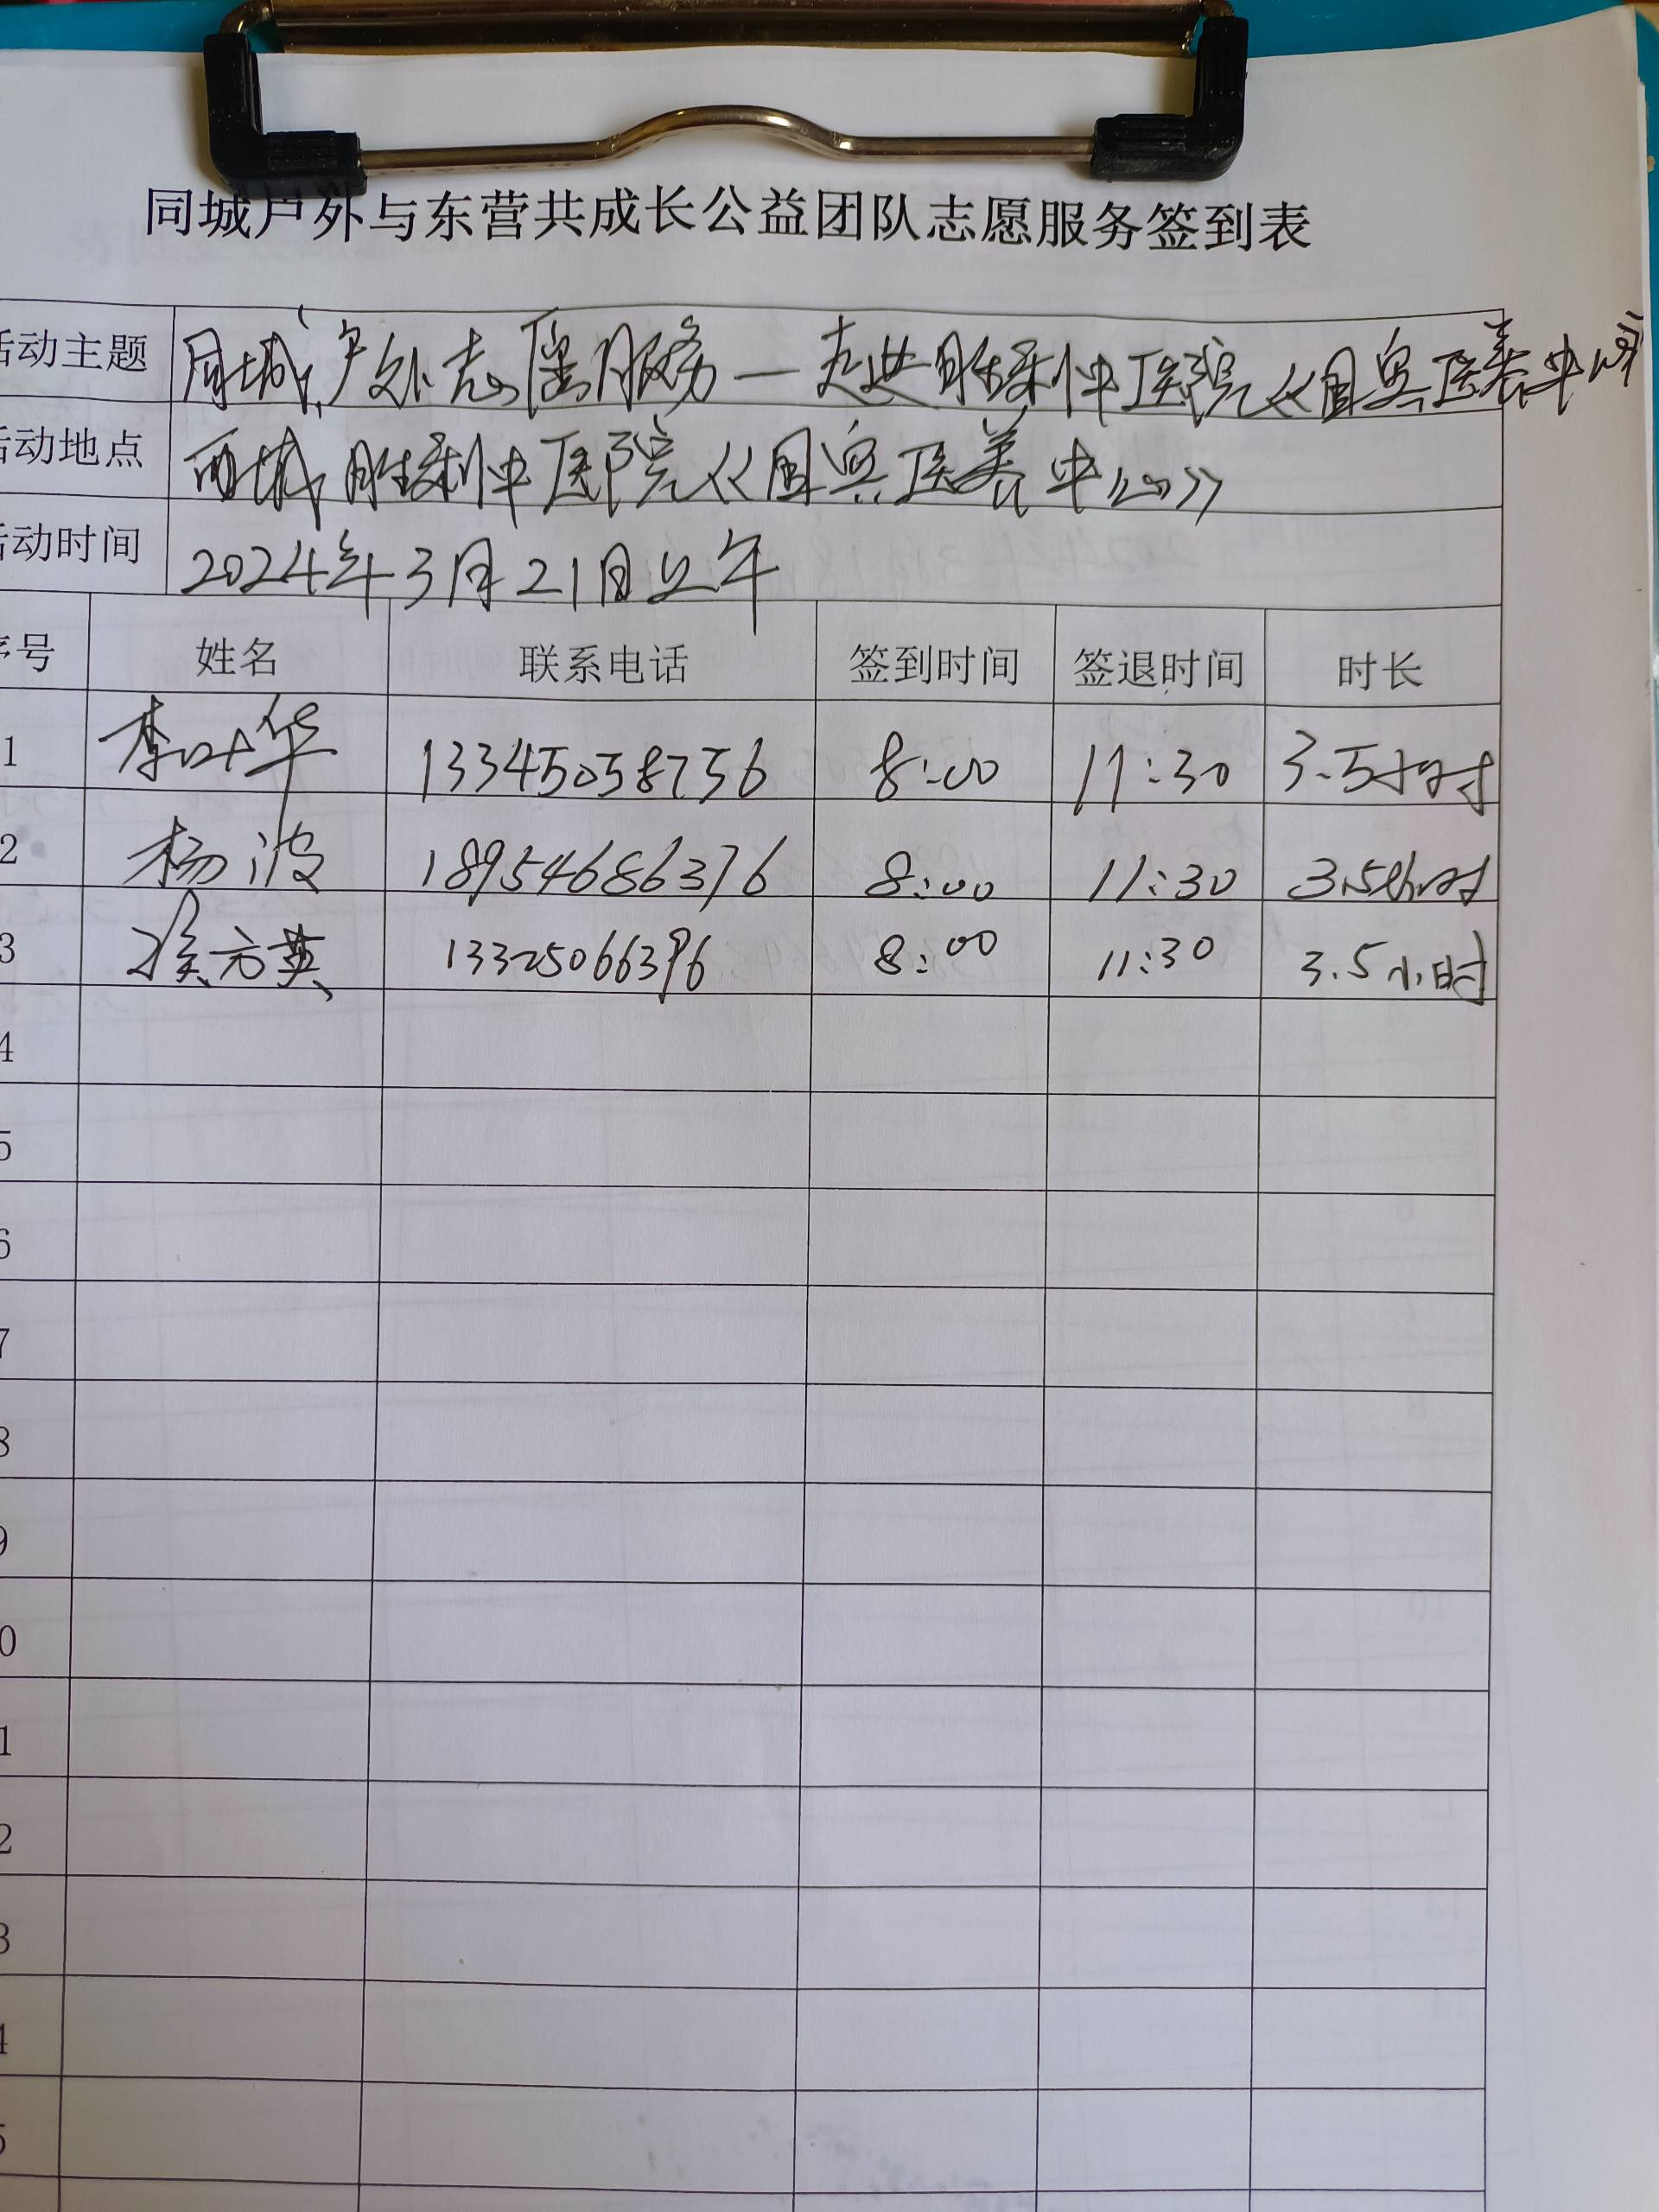 同城户外与东营共成长公益团队志愿服务签到表
活动主题 同城户外志愿服务—走进胜利中医院《国宾医养中心》
活动地点 西城胜利中医院《国宾医养中心》
活动时间 2024年3月21日上午
序号 姓名 联系电话 签到时间 签退时间 时长
1 李叶华 13345058756 8:00 11:30 3.5小时
2 杨波 18954686376 8:00 11:30 3.5小时
3 方英 13325066396 8:00 11:30 3.5小时
4
5
6
7
8
9
0
1
2
3
4
5